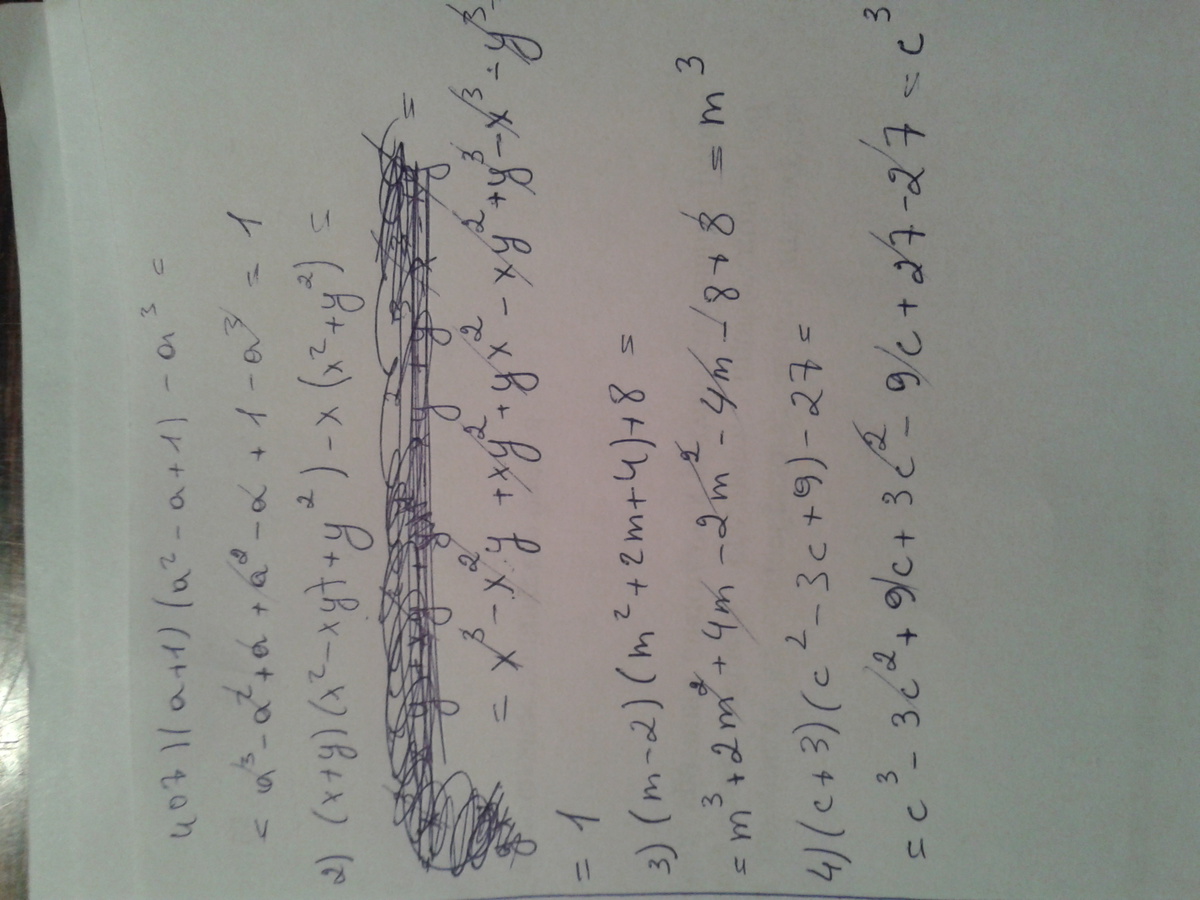 407)(a+1)(a²-a+1)-a³=
=a³-a²+a+a²-a+1-a³=1
2)(x+y)(x²-xy+y²)-x(x²+y²)=
=
=x³-x²y+xy²+yx²-xy²+y³-x³-y³=
=1
3)(m-2)(m²+2m+4)+8=
=m³+2m²+4m-2m²-4m-8+8=m³
4)(c+3)(c²-3c+9)-27=
=c³-3c²+9c+3c²-9c+27-27=c³